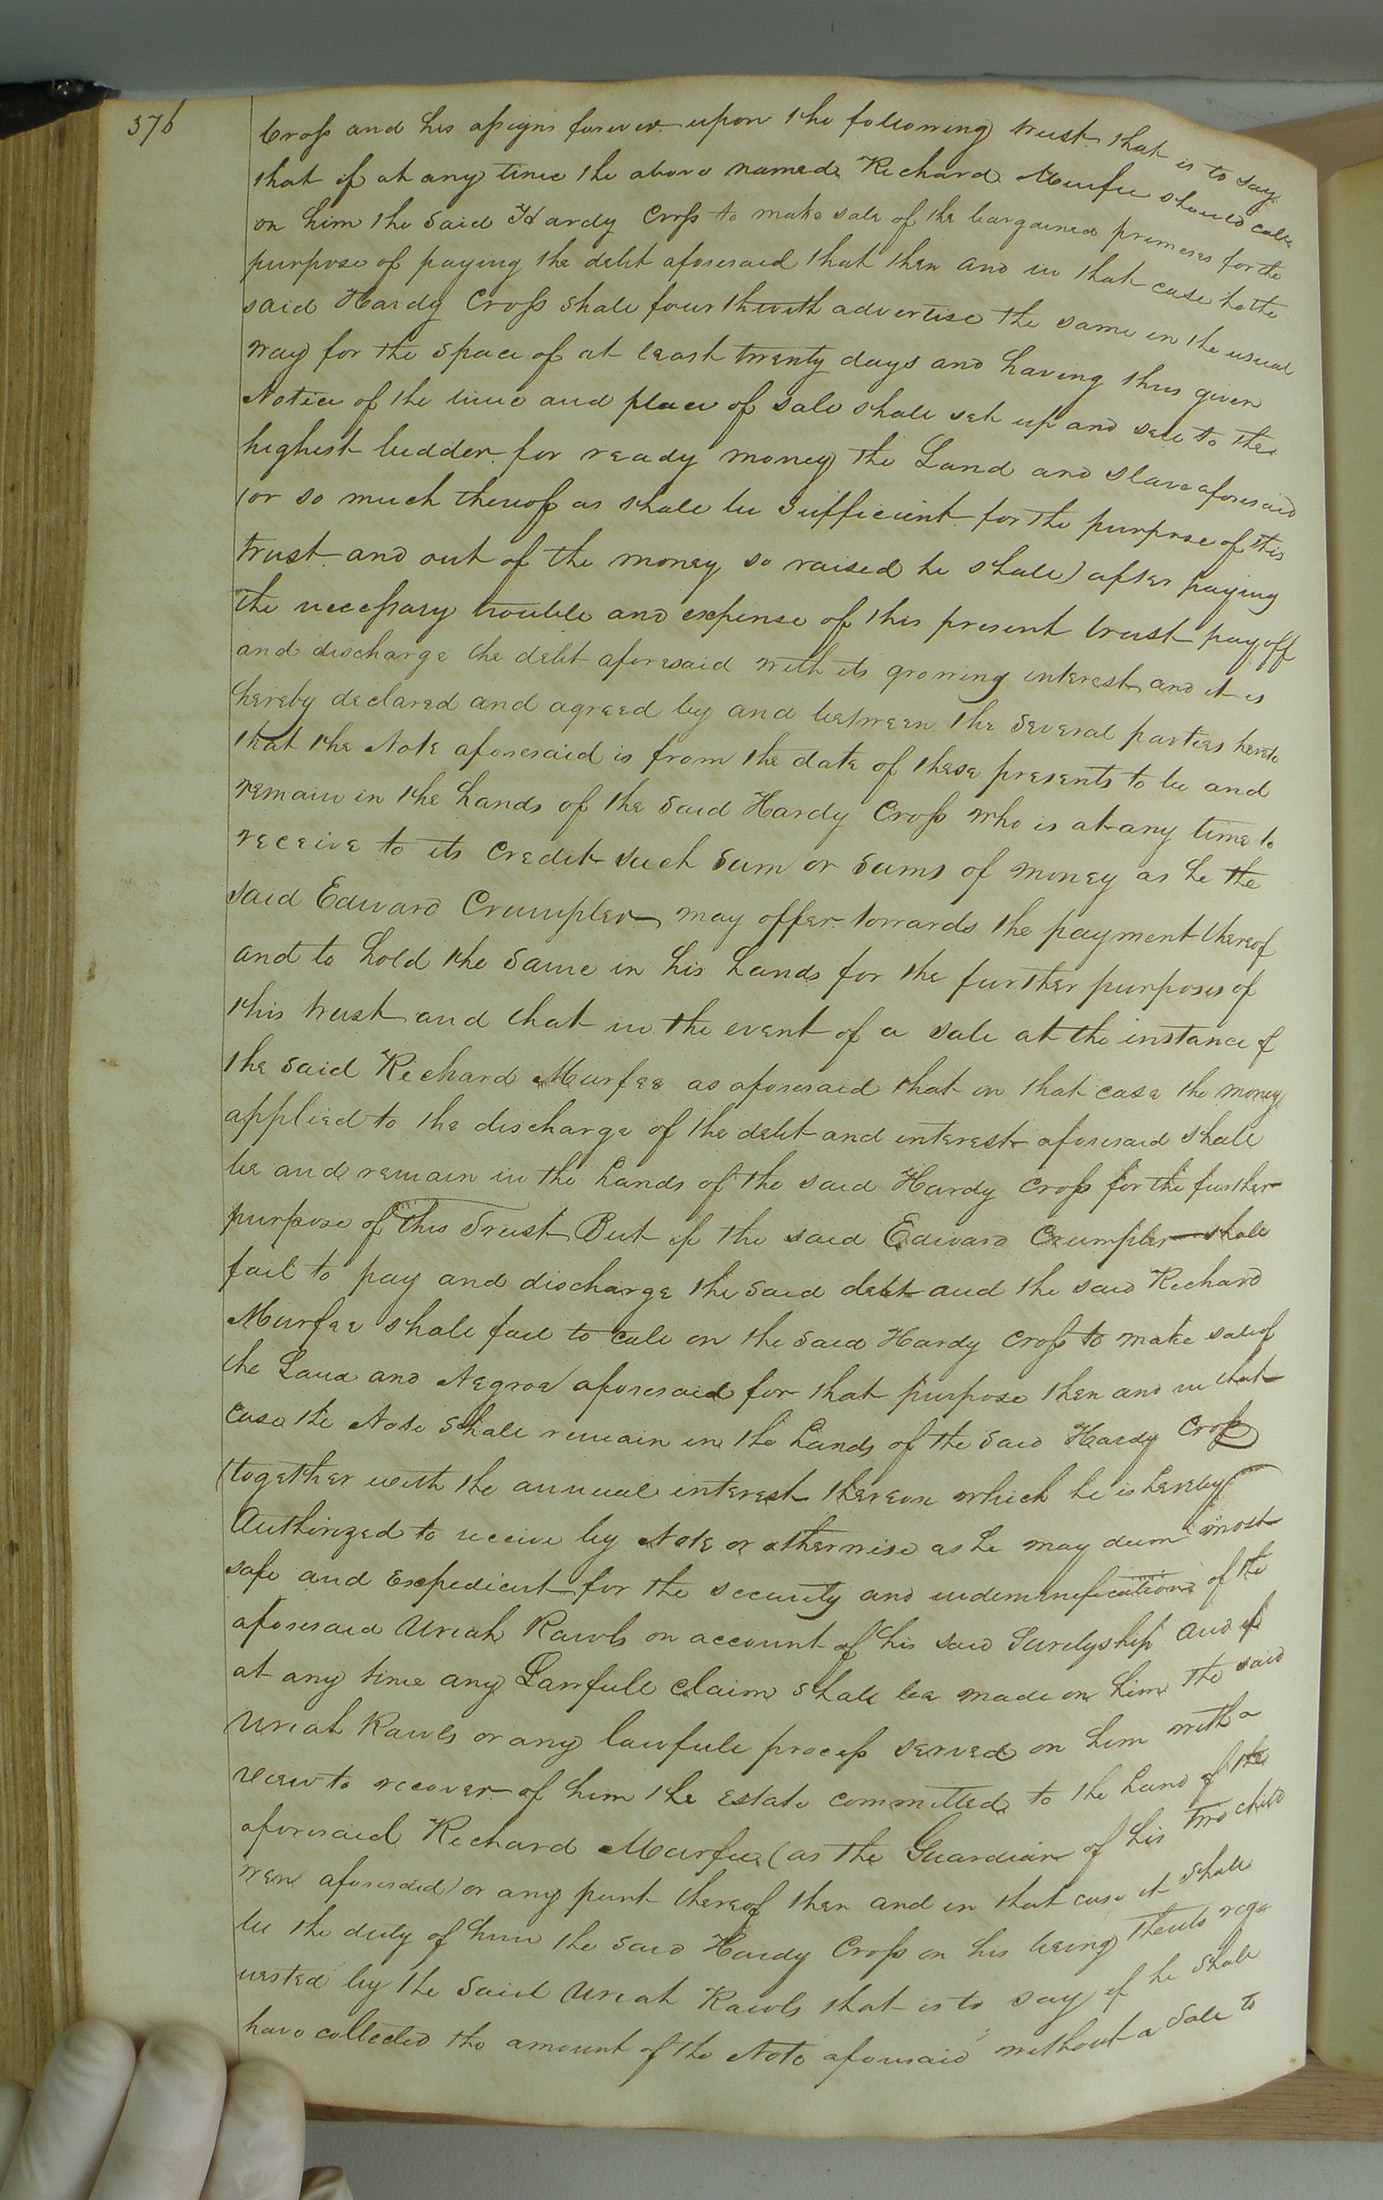 376
Cross and his assigns forever upon the following trust that is to say
that if at any time the above named Richard Murfee should call
on him the said Hardy Cross to make sale of the bargained premeses for the
purpose of paying the debt aforesaid that then and in that case he the
said Hardy Cross shall fourthwith advertise the same in the usual
way for the space of at least twenty days and having thus given
Notice of the time and place of sale shall set up and sell to the
highest bidder for ready money the Land and slave aforesaid
(or so much thereof as shall be sufficient for the purpose of this
trust and out of the money so raised he shall) after paying
the necessary trouble and expense of this present trust pay off
and discharge the debt aforesaid with its growing interest and it is
hereby declared and agreed by and between the several parties hereto
that the Note aforesaid is from the date of these presents to be and
remain in the hands of the said Hardy Cross who is at any time to
receive to its credit such sum or sums of money as he the
said Edward Crumpler may offer towards the payment thereof
and to hold the same in his hands for the further purposes of
this trust and that in the event of a sale at the instance of
the said Richard Murfee as aforesaid that in that case the money
applied to the discharge of the debt and interest aforesaid shall
be and remain in the hands of the said Hardy Cross for the further
purpose of this Trust But if the said Edward Crumpler shall
fail to pay and discharge the said debt and the said Richard
Murfee shall fail to call on the said Hardy Cross to make sale of
the Land and Negroe aforesaid for that purpose then and in that
case the Note shall remain in the hands of the said Hardy Cross
(together with the annual interest thereon which he is hereby
Authorized to receive by Note or otherwise as he may deem most
safe and Expedient for the security and indemnification of the
aforesaid Uriah Rawls on account of his said Suretyship and if
at any time any Lawfull claim shall be made on him the said
Uriah Rawls or any lawfull process served on him with a
view to recover of him the estate committed to the hand of the
aforesaid Richard Murfee (as the Guardian of his two child
ren aforesaid) or any part thereof then and in that case it shall
be the duty of him the said Hardy Cross on his being thereto requ
uested by the said Uriah Rawls that is to say if he shall
have collected the amount of the Note aforesaid without a sale to